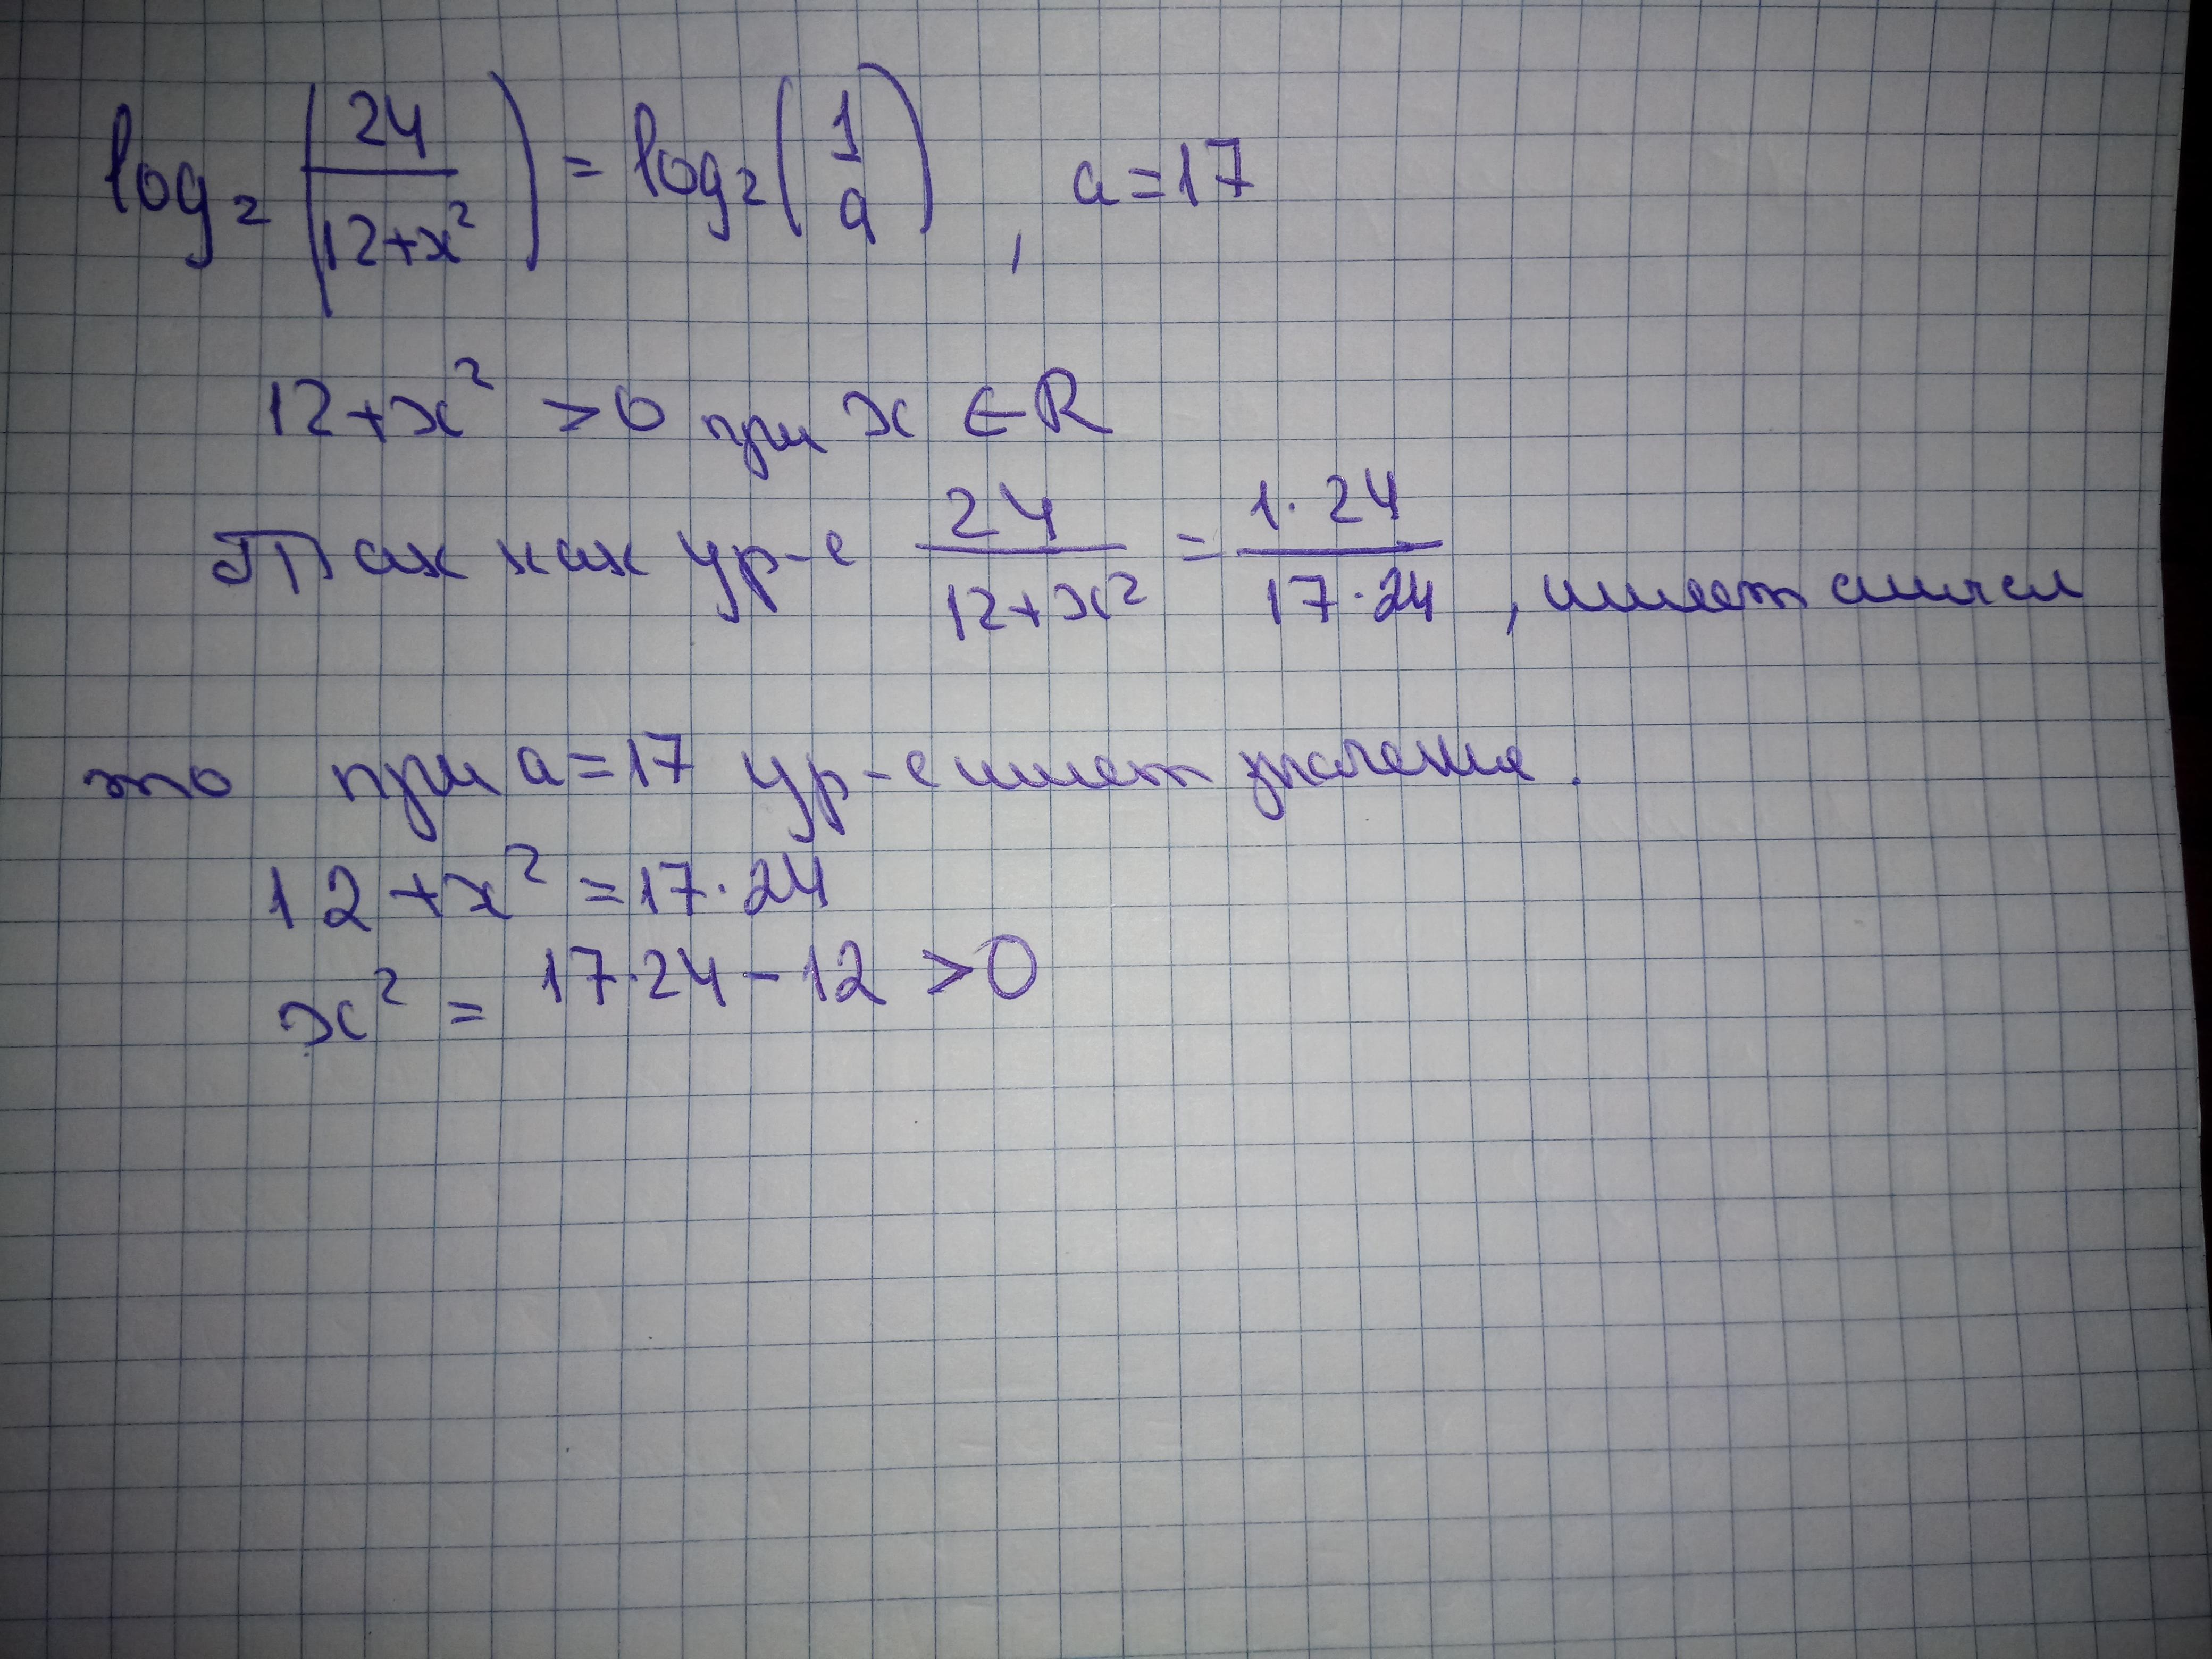 log₂(24/(12+x²)) = log₂(1/a), a=17
12+x² >0 при x ∈ R
Так как ур-е 24/(12+x²) = 1·24/(17·24), имеет смысл
то при a=17 ур-е имеет значение.
12+x² =17·24
x² = 17·24-12 >0